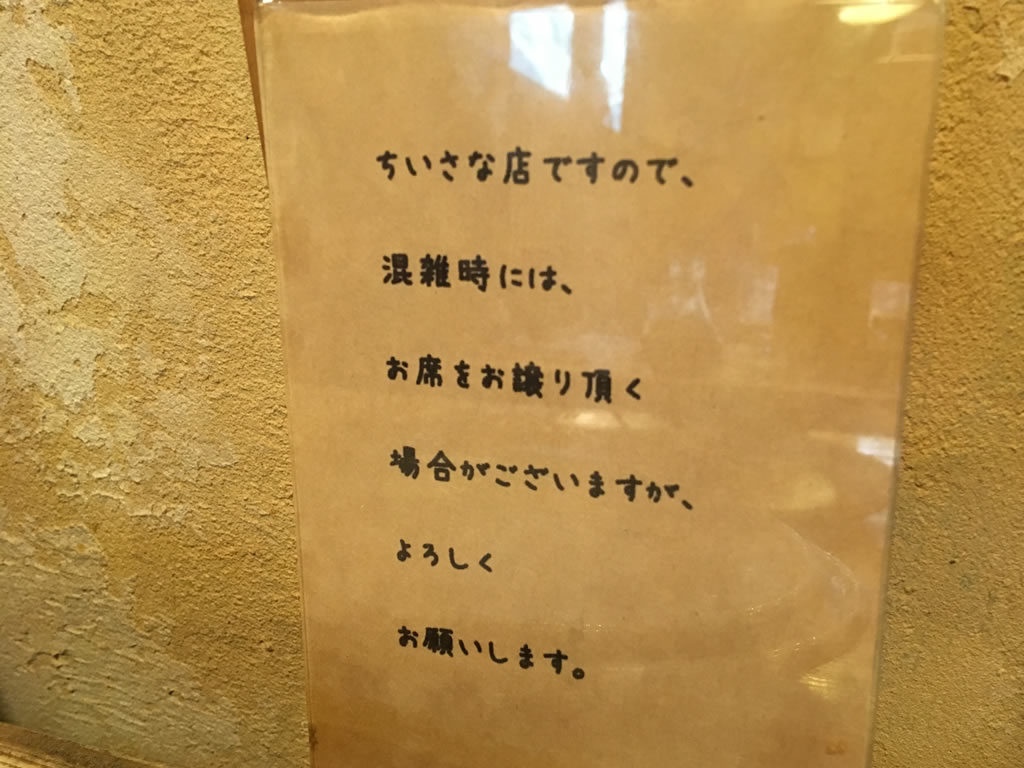 ちいさな店ですので、
混雑時には、
お席をお譲り頂く
場合がございますが、
よろしく
お願いします。